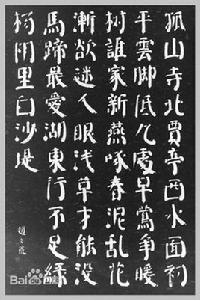 孤山寺北賈亭西水面初
平雲脚低几處早鶯爭暖
树誰家新燕啄春泥乱花
漸欲迷人眼浅草才能没
馬蹄最爱湖東行不足緑
杨阴里白沙堤
Bai百科